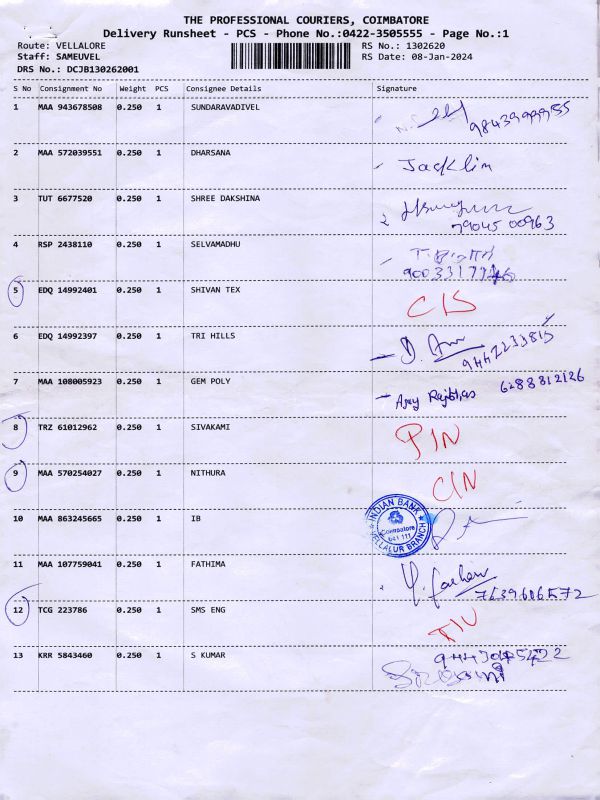 THE PROFESSIONAL COURIERS, COIMBATORE
Delivery Runsheet - PCS - Phone No.:0422-3505555 - Page No.:1
Route: VELLALORE RS No.: 1302620
Staff: SAMEUVEL RS Date: 08-Jan-2024
DRS No.: DCJB130262001
S No Consignment No Weight PCS Consignee Details Signature
1 MAA 943678508 0.250 1 SUNDARAVADIVEL
2 MAA 572039551 0.250 1 DHARSANA Jacklin
3 TUT 6677520 0.250 1 SHREE DAKSHINA
79045 00963
4 RSP 2438110 0.250 1 SELVAMADHU
5 EDQ 14992401 0.250 1 SHIVAN TEX CIS
6 EDQ 14992397 0.250 1 TRI HILLS
9442233815
7 MAA 108005923 0.250 1 GEM POLY 6288812126
8 TRZ 61012962 0.250 1 SIVAKAMI PIN
9 MAA 570254027 0.250 1 NITHURA CIN
10 MAA 863245665 0.250 1 IB
INDIAN BANK
Coimbatore
641 111
VELLALUR BRANCH
11 MAA 107759041 0.250 1 FATHIMA
7639606572
12 TCG 223786 0.250 1 SMS ENG
13 KRR 5843460 0.250 1 S KUMAR